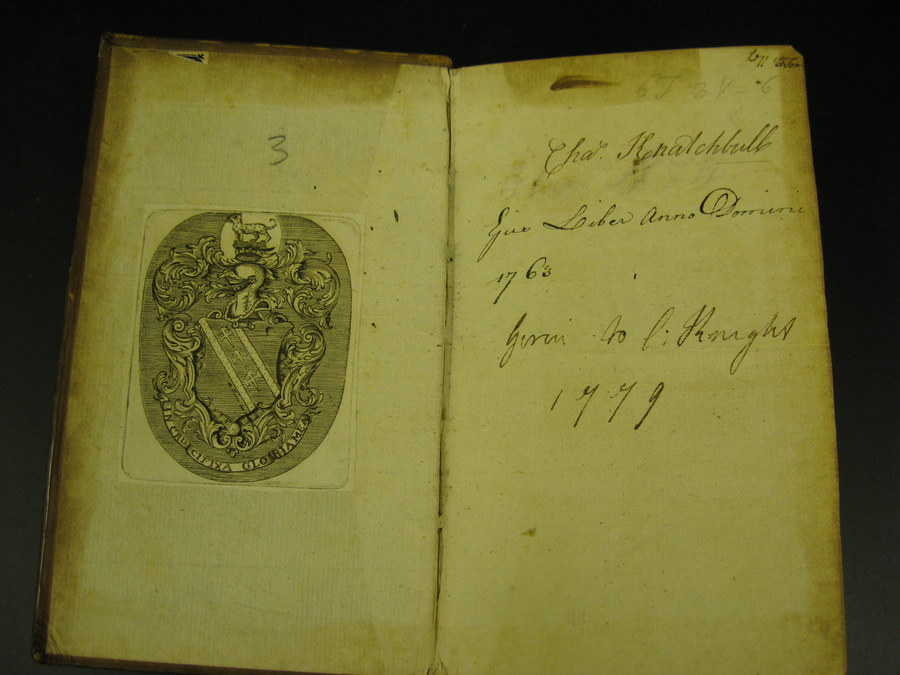 3
IN CRUCIFIXA GLORIA MEA
Chas. Knatchbull
Ejus Liber Anno Domini
1763
Given to C: Knight
1779